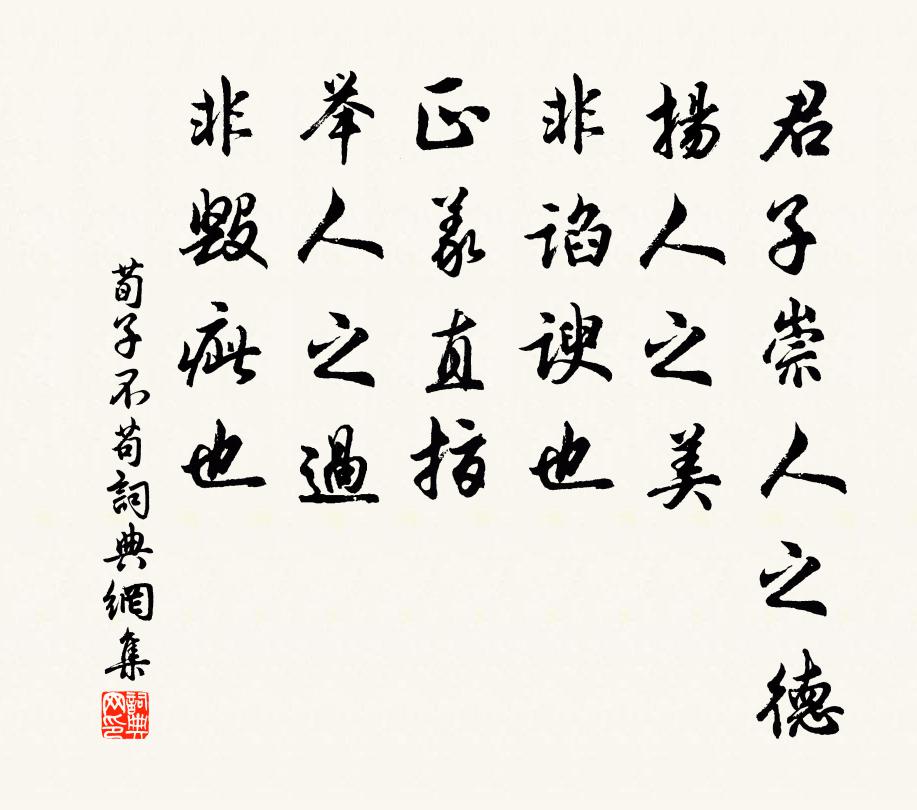 君子崇人之德
揚人之美
非谄諛也
正義直指
举人之過
非毁疵也
荀子不苟詞典網集
詞典网印